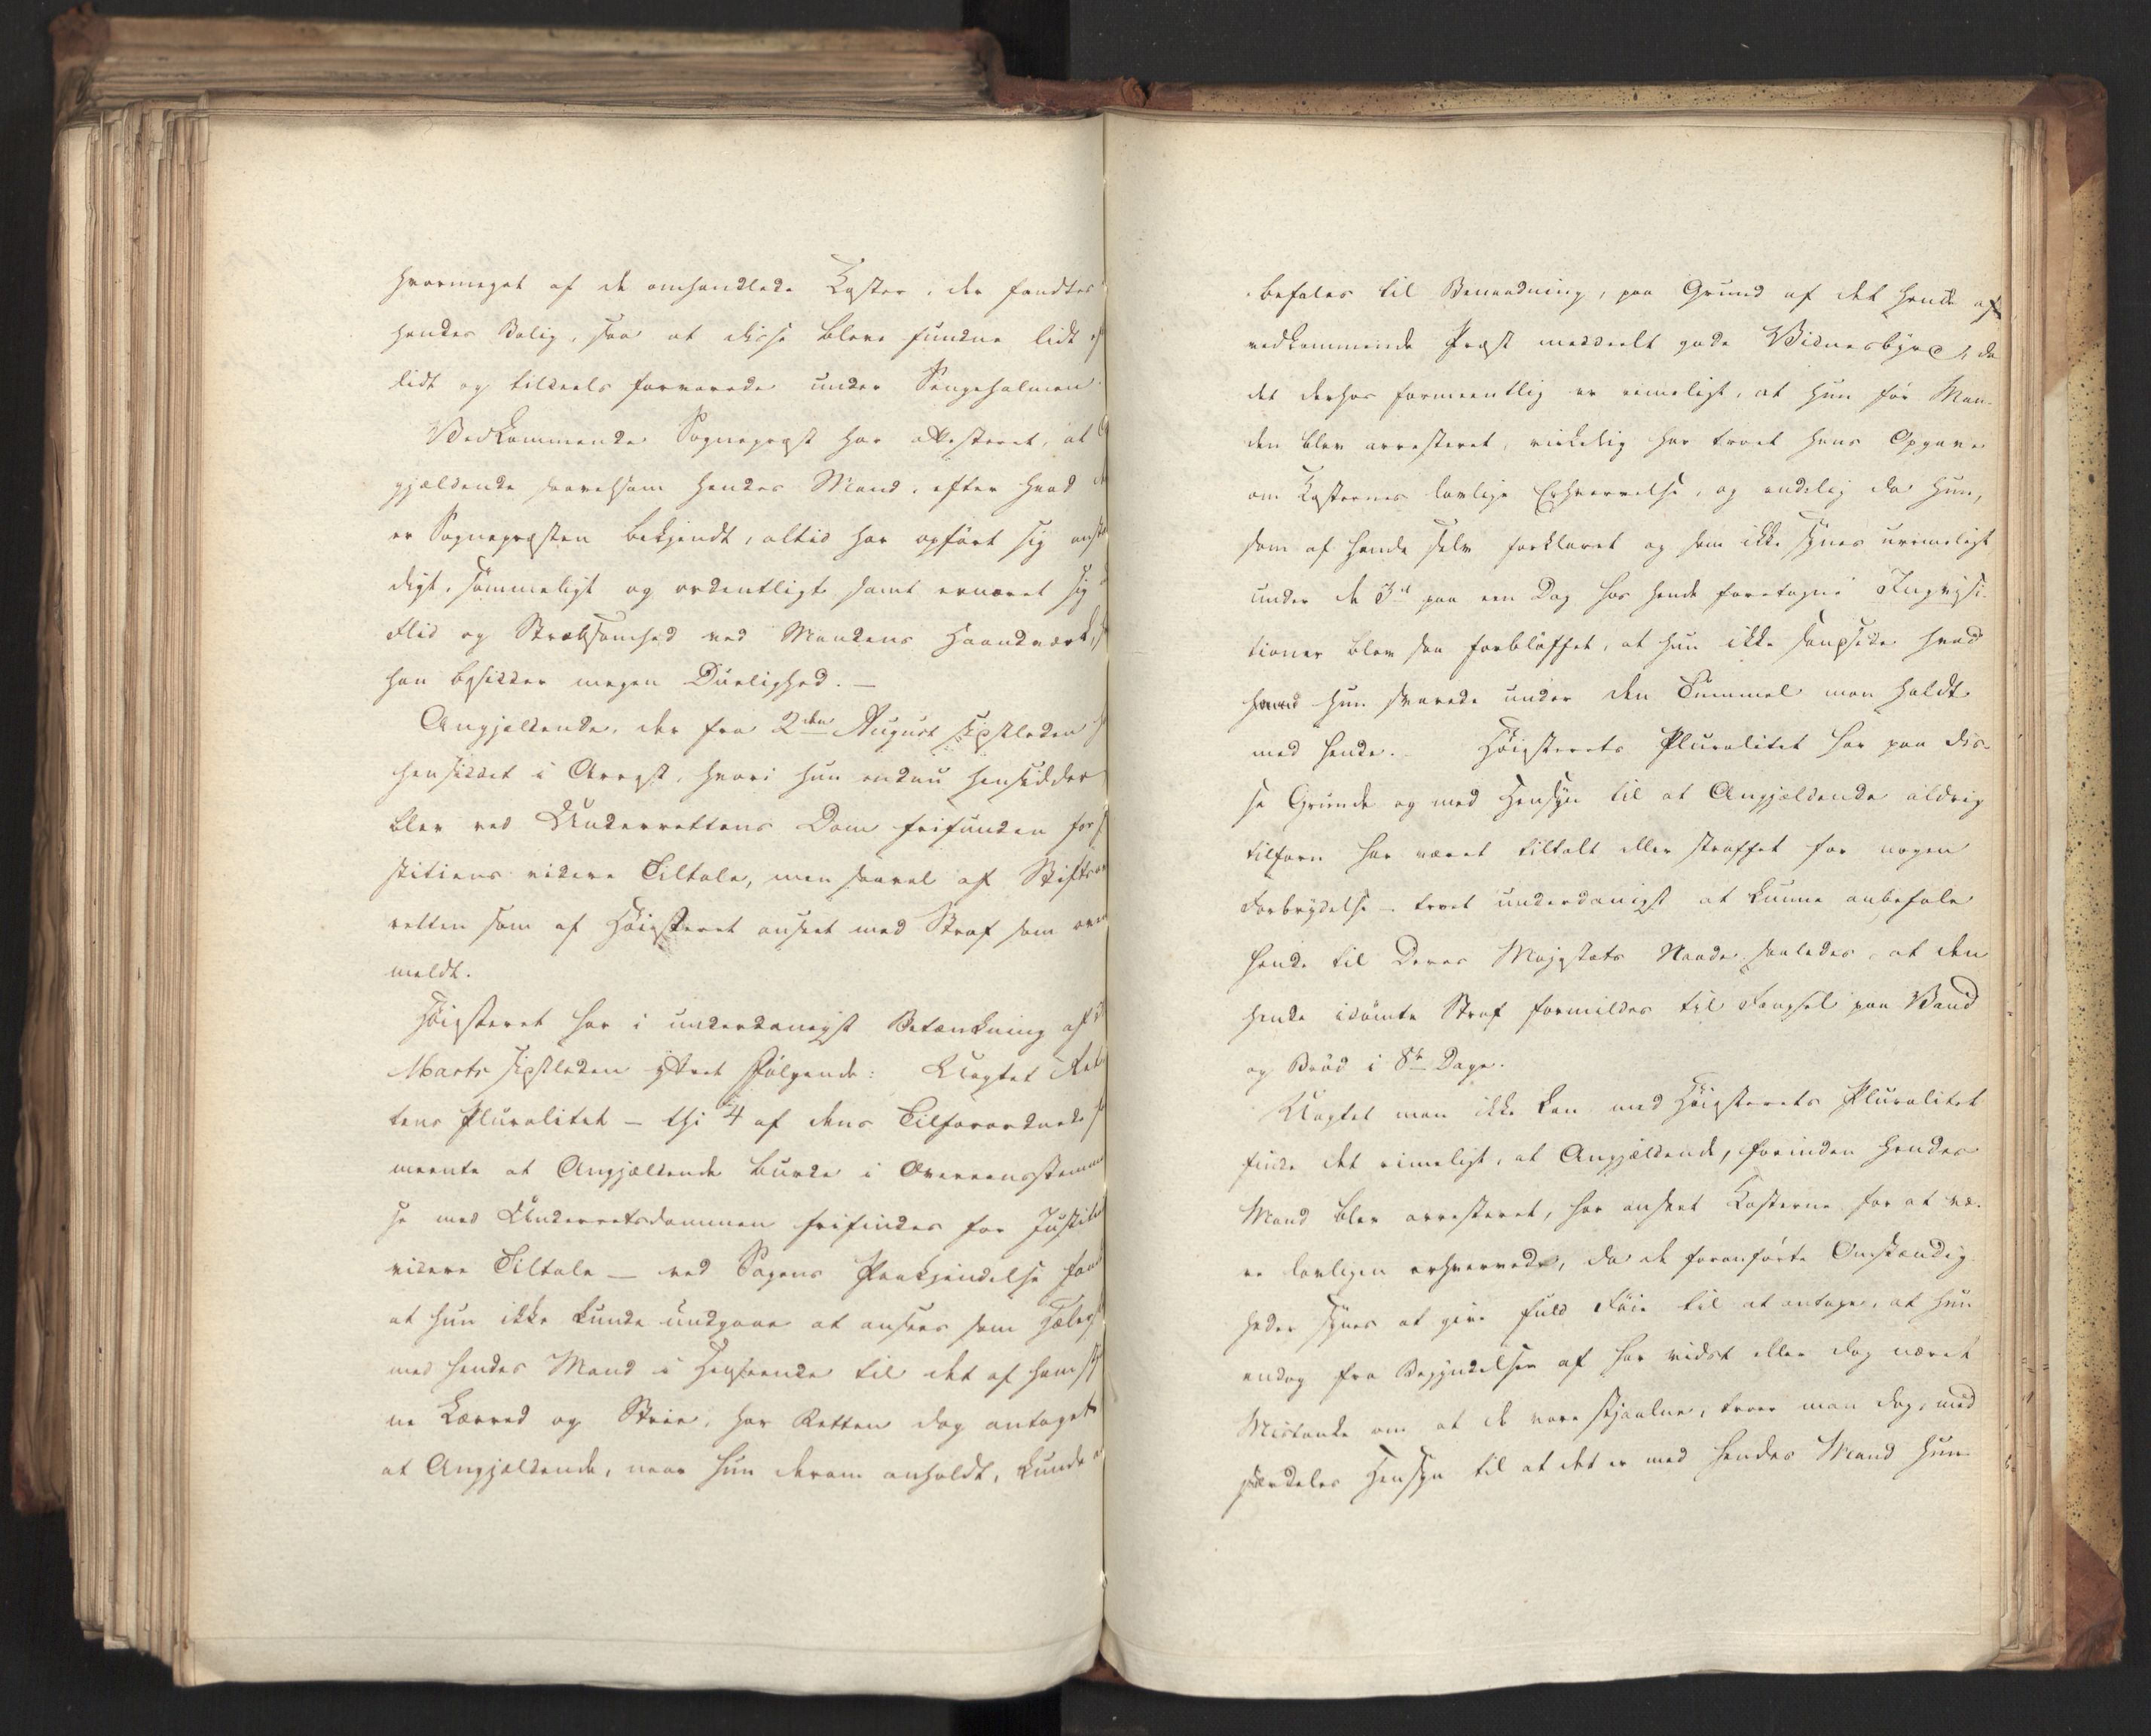 hvormeget af de omhandlede Koster, der fandtes
hendes Bolig, saa at disse bleve fundne lidt ef
lidt og tildeels forvarede under Sengehalmen.
Vedkommende Sognepræst har attesteret, at
gjældende saavelsom hendes Mand, efter hvad d
er Sognepræsten bekjendt, altid har opført sig anst
digt, sømmeligt og ordentligt samt ernæret sig
Flid og Stræbsomhed ved Mandens Haandværk,
han besidder megen Duelighed. —
Angjældende, der fra 2den August sidstleden
hensiddet i Arrest, hvori hun endnu hensidder
blev ved Underrettens Dom frifunden for
stitiens videre Tiltale, men saavel af Stiftsov
retten som af Høiesteret anseet med Straf som oven
meldt.
Høiesteret har i underdanigst Betænkning af
Marts sidstleden yttret Følgende: Uagtet Ret
tens Pluralitet — thi 4 af dens Tilforordnede
meente at Angjældende burde i Overeensstemme
se med Underretsdommen frifindes for Justiti
videre Tiltale — ved Sagens Paakjendelse fandt
at hun ikke kunde undgaae at ansees som Hæler
med hendes Mand i Henseende til det af ham stj
ne Lærred og Skrin, har Retten dog antaget
at Angjældende, naar hun derom anholdt, kunde
befales til Benaadning, paa Grund af det hende af
vedkommende Præst meddeelt gode Vidnesbyrd, da
det derhos formeentlig er rimeligt, at hun før Man-
den blev arresteret, virkelig har troet hans Opgave
om Kosternes lovlige Erhvervelse, og endelig da hun,
som af hende selv forklaret og som ikke synes urimeligt
under de 3de paa een Dag hos hende foretagne Inqvisi-
tioner blev saa forbløffet, at hun ikke sandsede hvad
hvad hun svarede under den Tummel man holdt
med hende. Høiesterets Pluralitet har paa dis-
se Grunde og med Hensyn til at Angjældende aldrig
tilforn har været tiltalt eller straffet for nogen
Forbrydelse — troet underdanigst at kunne anbefale
hende til Deres Majestæts Naade saaledes, at den
hende idømte Straf formildes til Fængsel paa Vand
og Brød i 8te Dage.
Uagtet man ikke kan med Høiesterets Pluralitet
finde det rimeligt, at Angjældende, forinden hendes
Mand blev arresteret, har anseet Kosterne for at væ-
re lovligen erhvervede, da de foranførte Omstændig-
heder synes at give fuld Føie til at antage, at hun
endog fra Begyndelsen af har vidst eller dog næret
Mistanke om at de vare stjaalne, troer man dog, med
særdeles Hensyn til at det er med hendes Mand hun